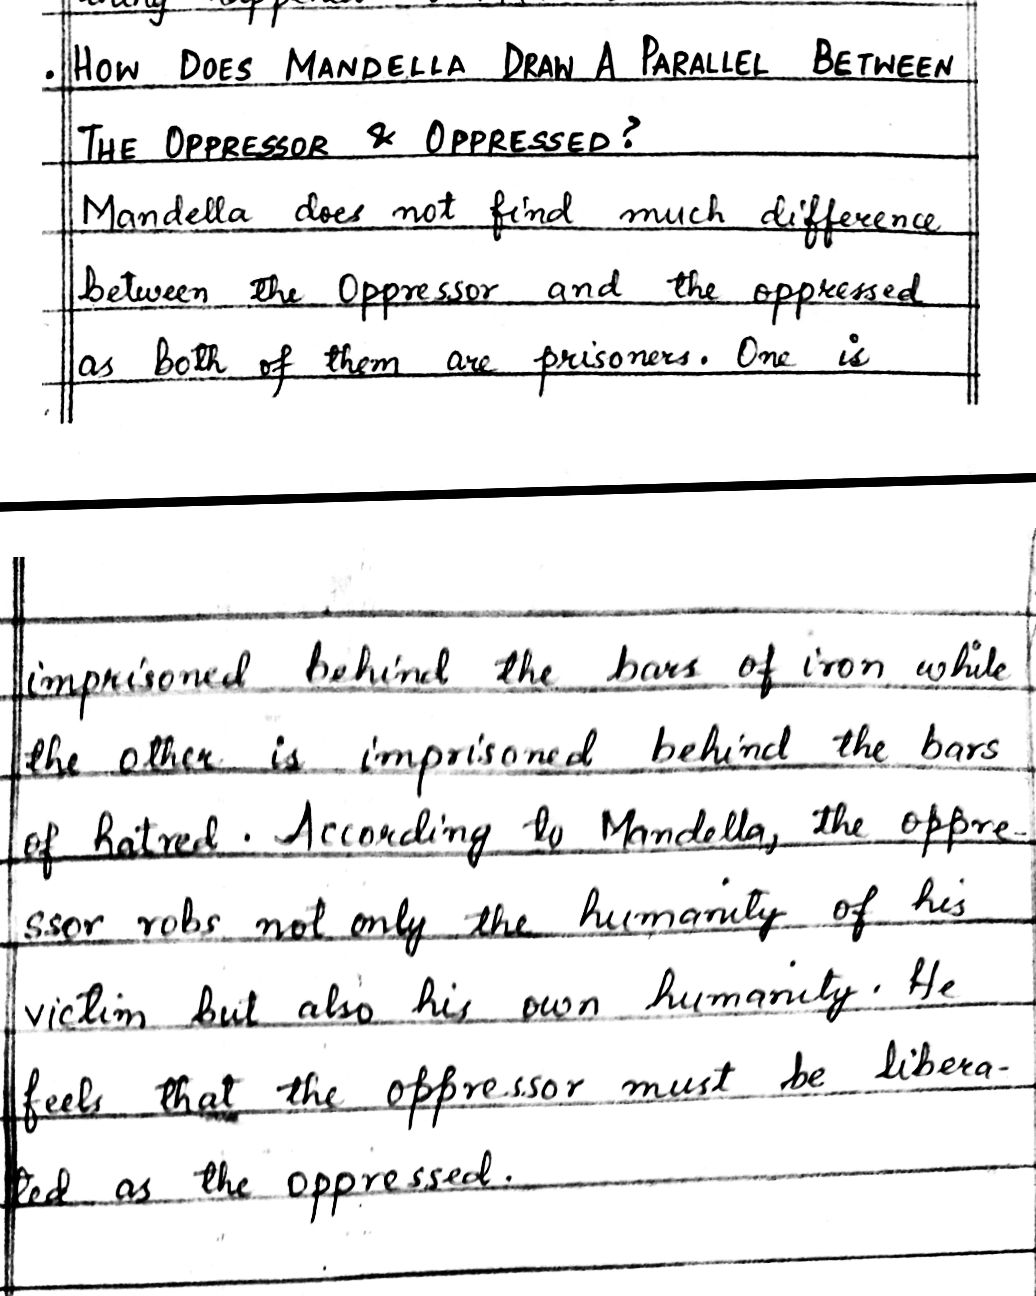 • HOW DOES MANDELLA DRAW A PARALLEL BETWEEN
THE OPPRESSOR & OPPRESSED?
Mandella does not find much difference
between the Oppressor and the oppressed
as both of them are prisoners. One is
imprisoned behind the bars of iron while
the other is imprisoned behind the bars
of hatred. According to Mandella, the oppre-
ssor robs not only the humanity of his
victim but also his own humanity. He
feels that the oppressor must be libera-
ted as the oppressed.